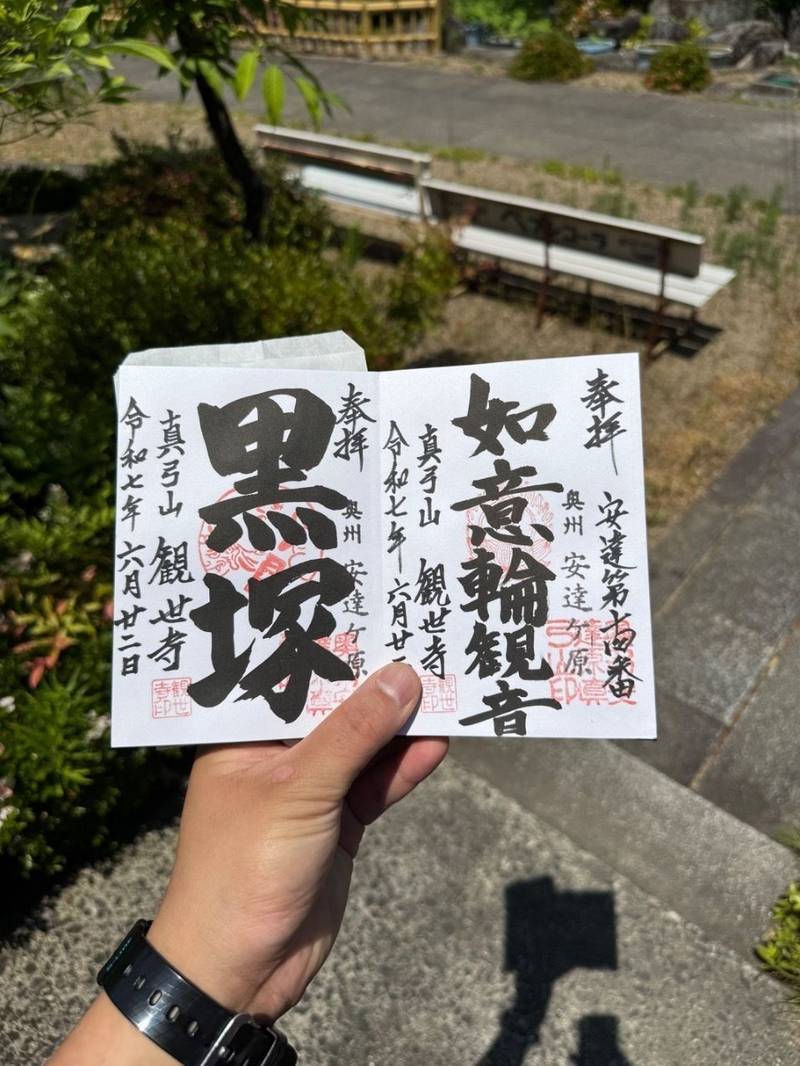 奉拝
安達第十四番
奥州 安達ケ原
如意輪観音
真弓山 観世寺
令和七年 六月廿二
観世寺印
奉拝
奥州 安達ケ原
黒塚
真弓山 観世寺
令和七年 六月廿二日
観世寺印